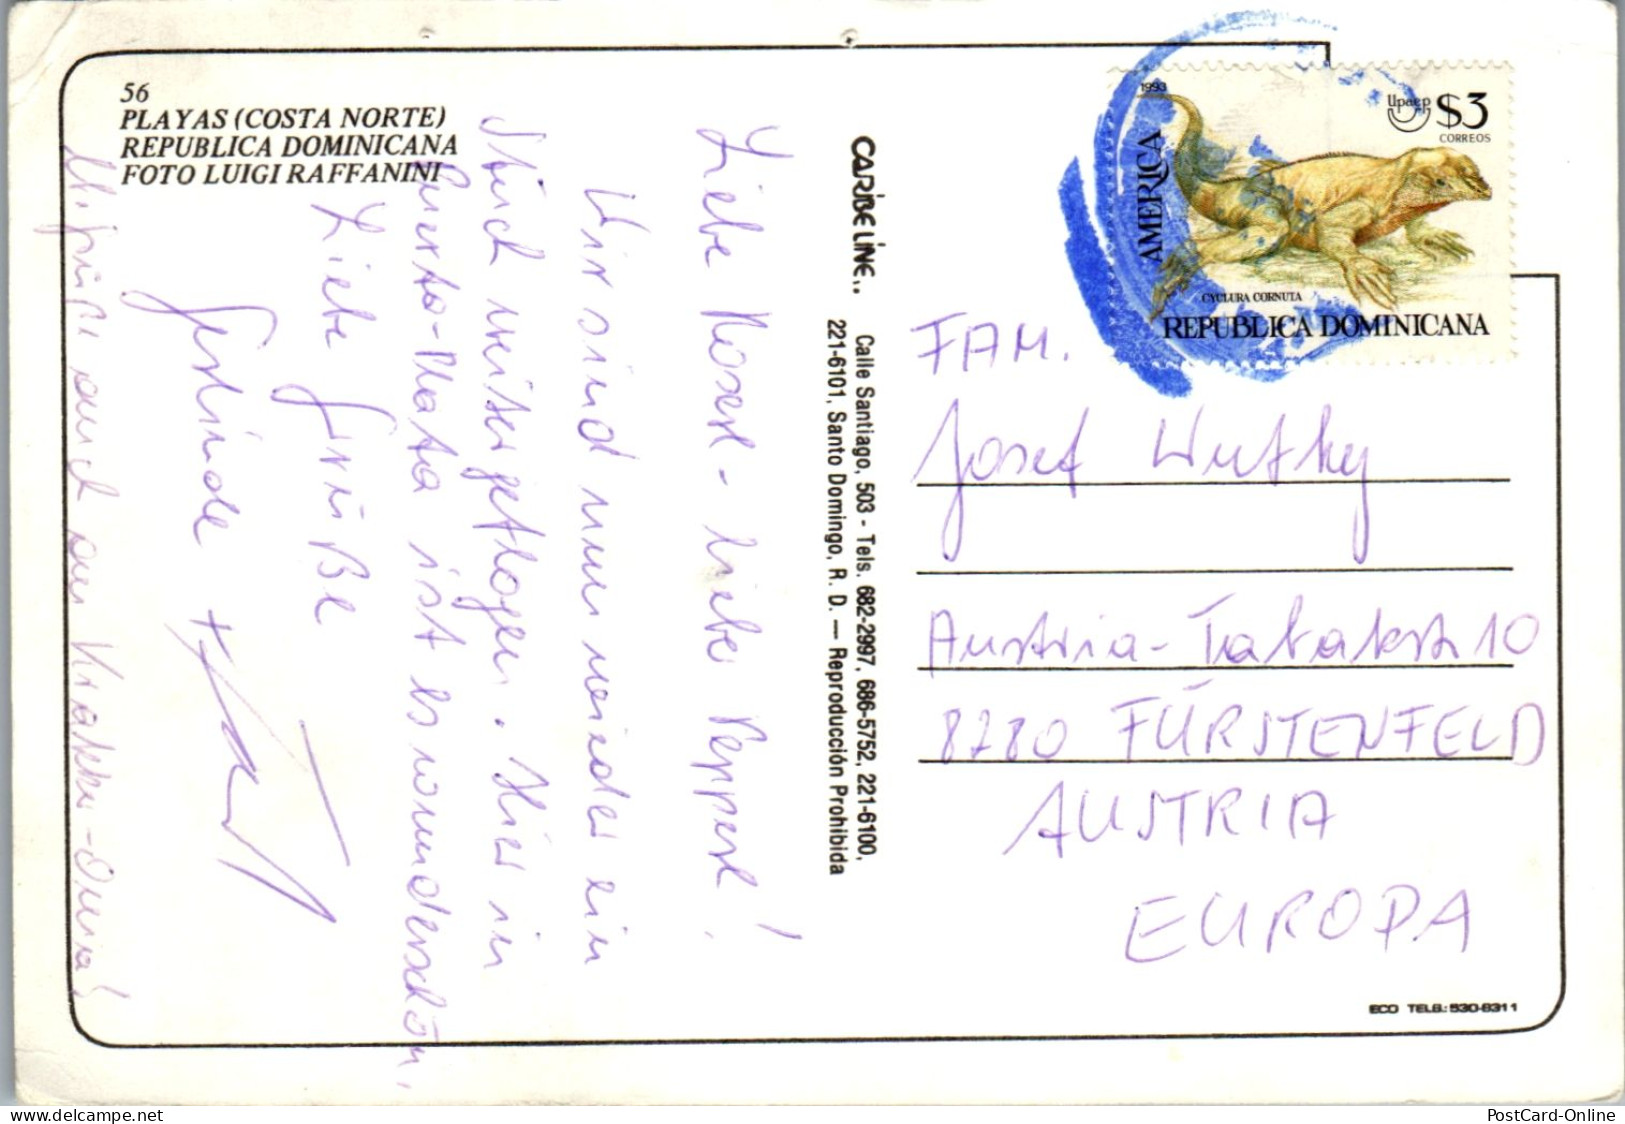 56
PLAYAS (COSTA NORTE)
REPUBLICA DOMINICANA
FOTO LUIGI RAFFANINI
Liebe Roserl - lieber Pepperl!
Wir sind nun wieder ein
Stück weitergeflogen. Hier in
Puerto-Plata ist es wunderschön.
Liebe Grüße
Gerlinde +
auch an
Oma!
CARIBE LINE..
Calle Santiago, 503 - Tels. 682-2997, 686-5752, 221-6100,
221-6101, Santo Domingo, R. D. — Reproducción Prohibida
1993
AMERICA
Upaep $3
CORREOS
CYCLURA CORNUTA
REPUBLICA DOMINICANA
FAM.
Josef
Austria- 10
8280 FÜRSTENFELD
AUSTRIA
EUROPA
ECO TELS.: 530-6311
PostCard-Online
www.delcampe.net